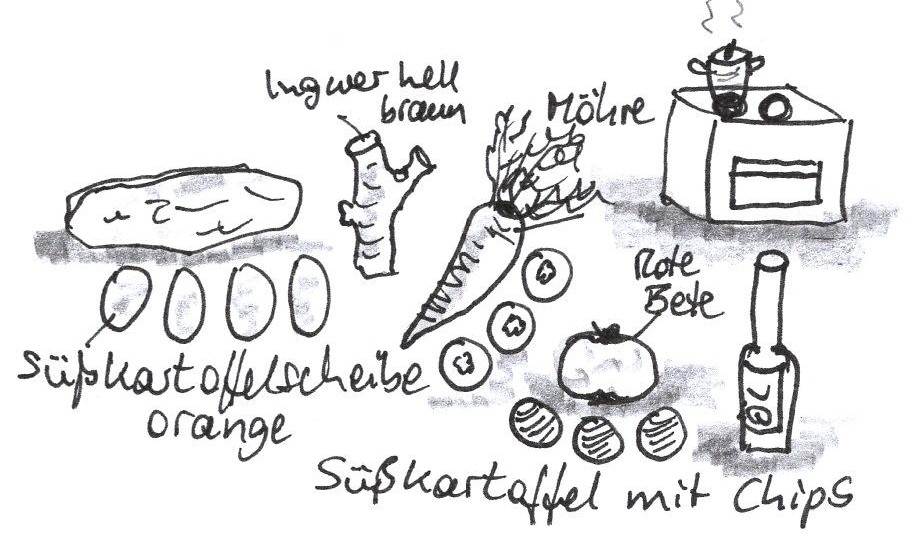 Ingwer hell
braun
Möhre
Rote
Bete
Süßkartoffelscheibe
orange
Süßkartoffel mit Chips